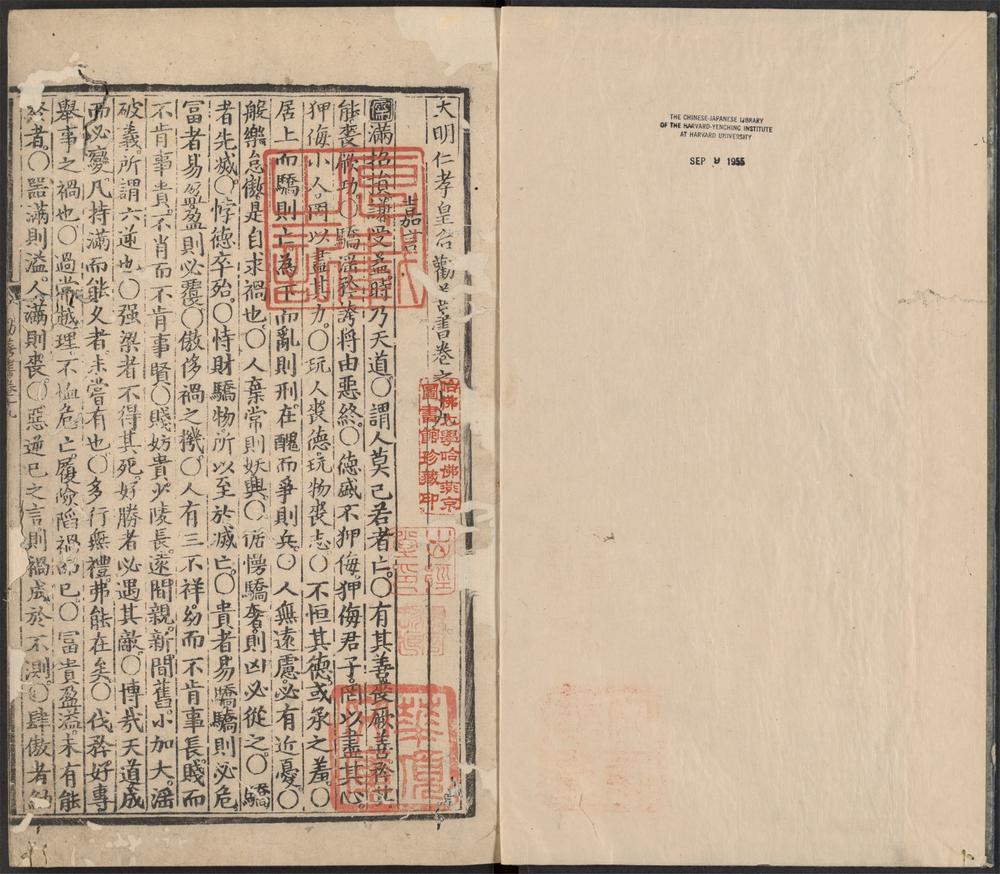 THE CHINESE-JAPANESE LIBRARY
OF THE HARVARD-YENCHING INSTITUTE
AT HARVARD UNIVERSITY
SEP 9 1955
大明仁孝皇后勸善書卷之九
嘉言
滿招損謙受益時乃天道〇謂人莫己若者亡〇有其善喪厥善矜其
能喪厥功〇驕淫矜誇將由惡終〇德盛不狎侮狎侮君子罔以盡其心
狎侮小人罔以盡其力〇玩人喪德玩物喪志〇不恒其德或承之羞〇
居上而驕則亡為下而亂則刑在醜而爭則兵〇人無遠慮必有近憂〇
般樂怠傲是自求禍也〇人棄常則妖興〇倨慢驕奢則凶必從之〇驕
者先滅〇悖德卒殆〇恃財驕物所以至於滅亡〇貴者易驕驕則必危
富者易盈盈則必覆〇傲侈禍之機〇人有三不祥幼而不肯事長賤而
不肯事貴不肖而不肯事賢〇賤妨貴少陵長遠間親新間舊小加大淫
破義所謂六逆也〇强梁者不得其死好勝者必遇其敵〇博哉天道成
而必變凡持滿而能久者未嘗有也〇多行無禮弗能在矣〇伐矜好專
舉事之禍也〇過常越理不恤危亡履險陷禍而已〇富貴盈溢未有能
終者〇器滿則溢人滿則喪〇惡逆已之言則禍成於不測〇肆傲者納
勸善書卷九
哈佛大學哈佛燕京
圖書館珍藏印